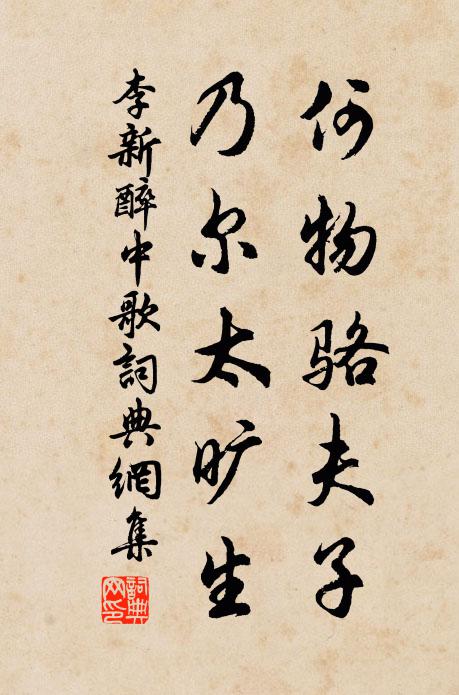 何物骆夫子
乃尔太旷生
李新醉中歌詞典網集
詞典網印